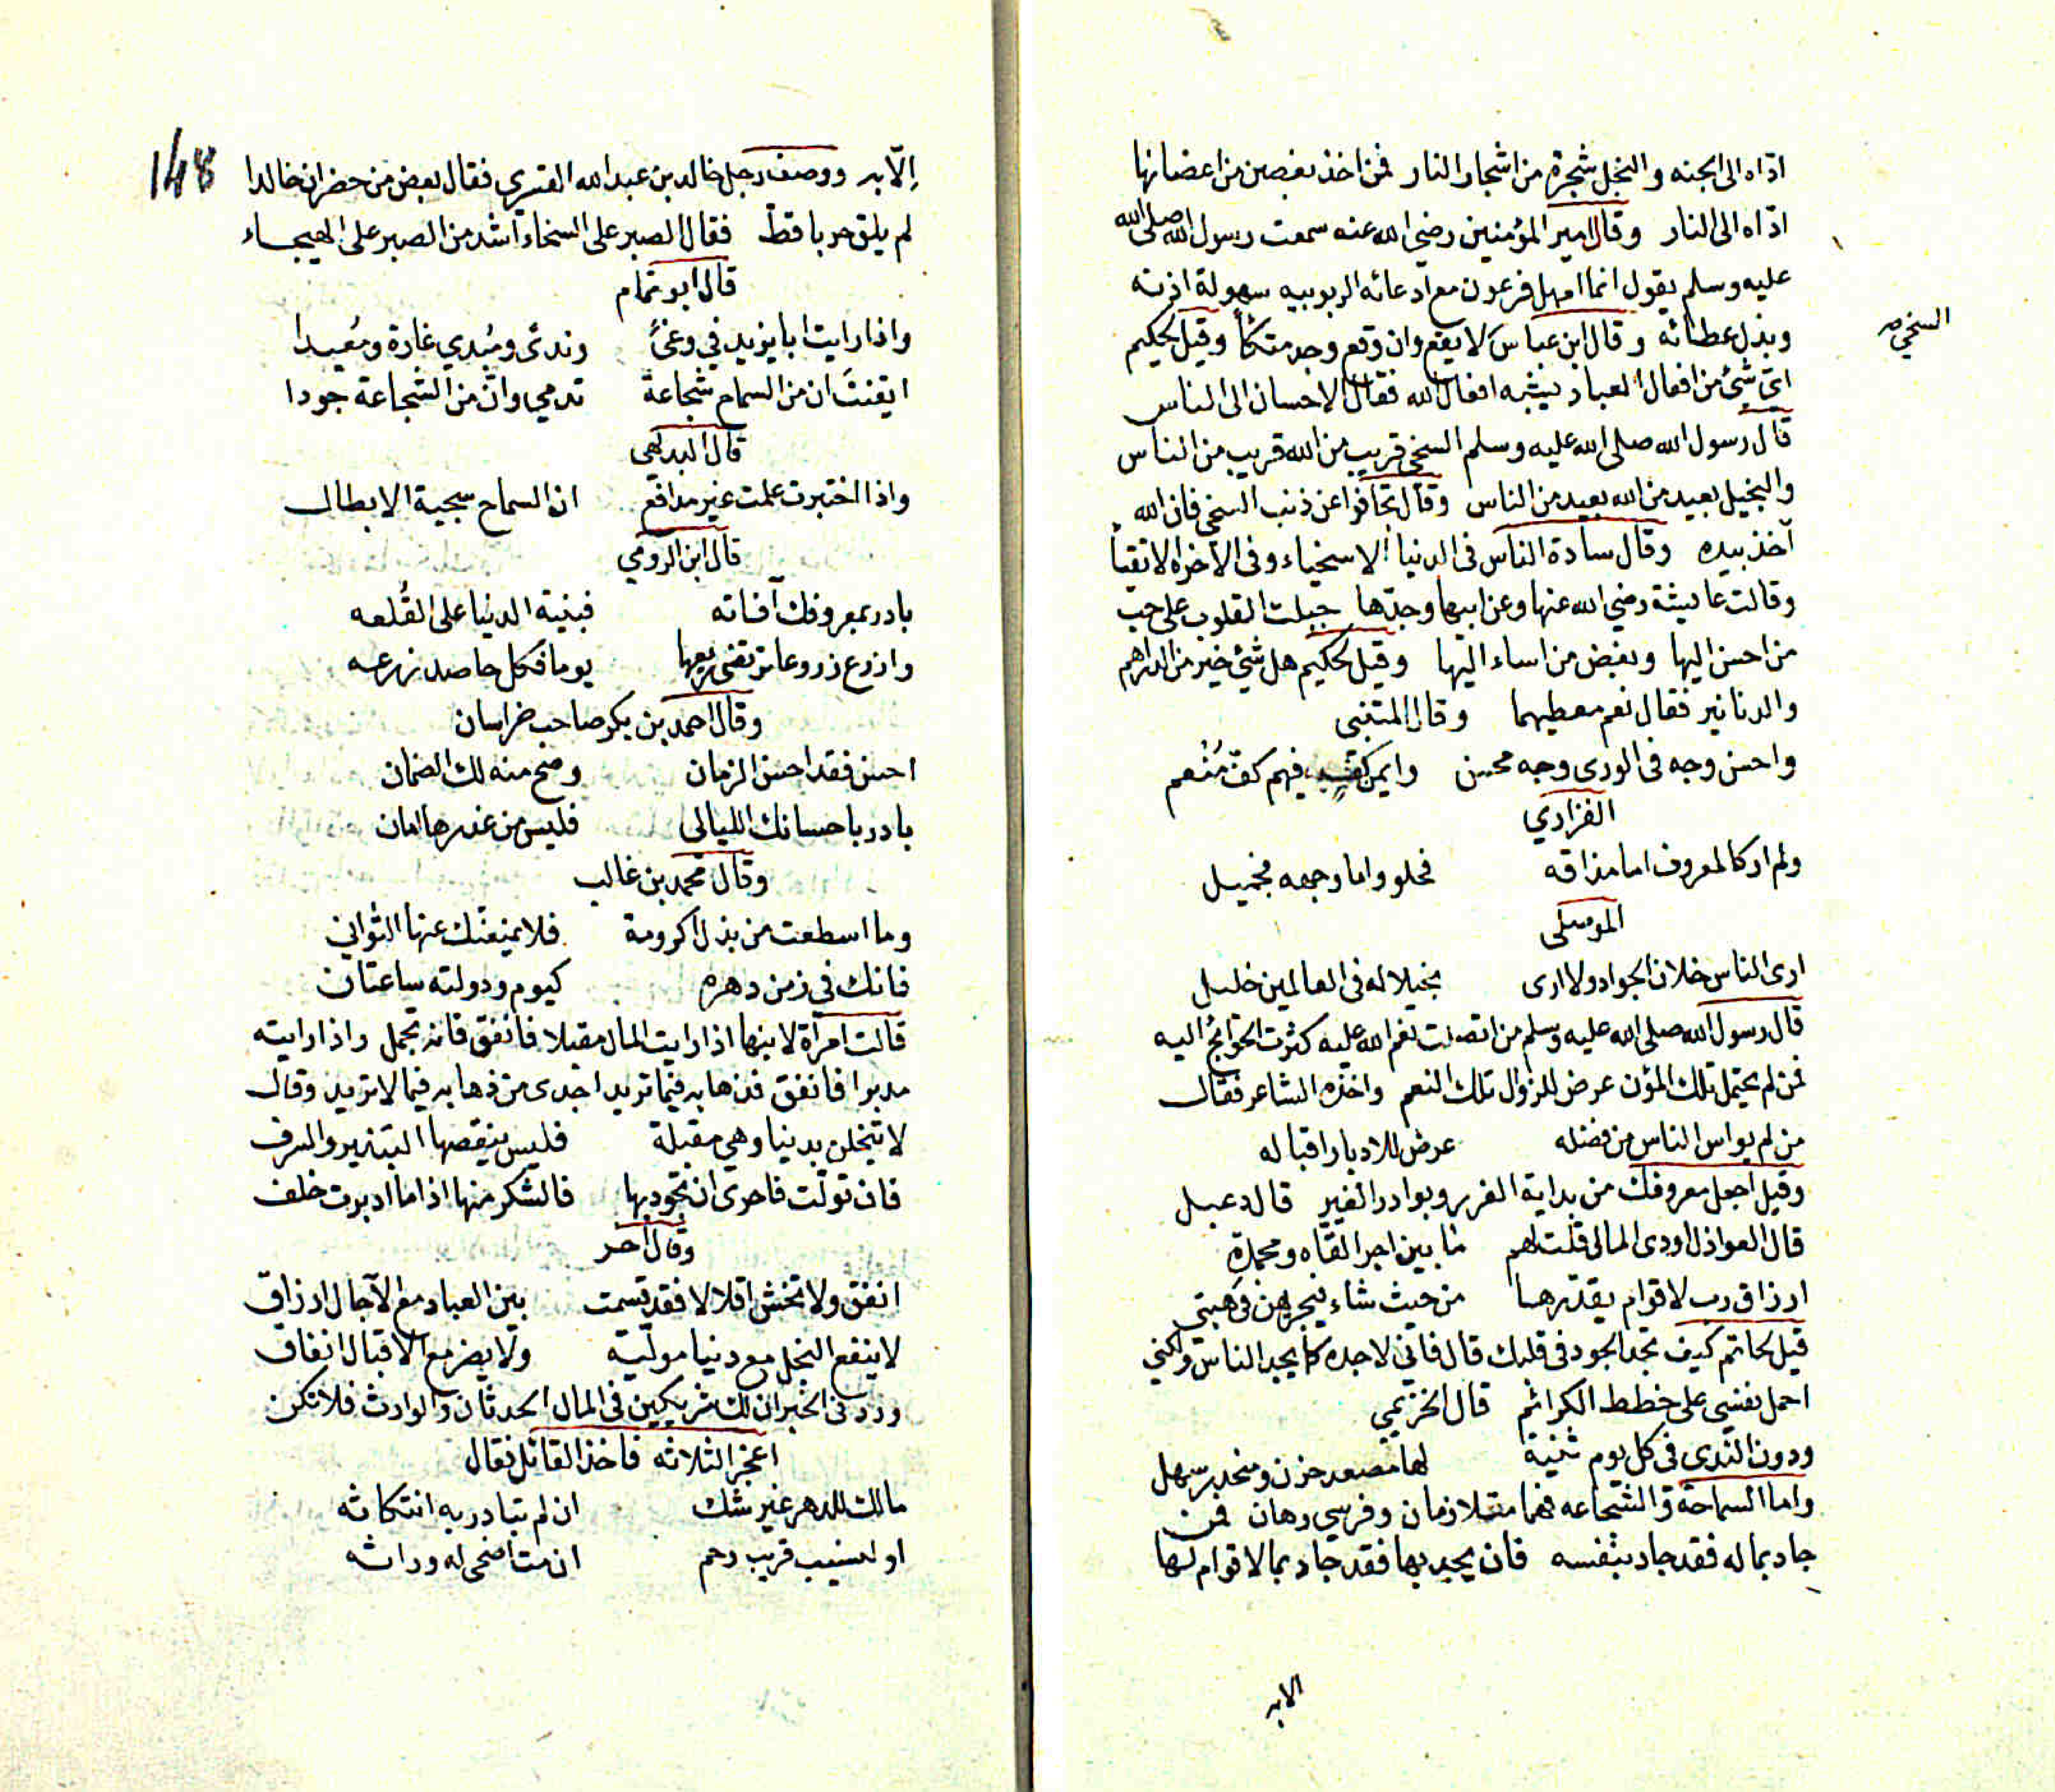 ادّاه الى الجنه والبخل شجرة من اشجار النار فمن اخذ بغصن من اغصانها
ادّاه الى النار وقال امير المؤمنين رضي الله عنه سمعت رسول الله صلى الله
عليه وسلم يقول انما امهل فرعون مع ادعائه الربوبيه سهولة اذنه
وبذل عطائه وقال ابن عباس لا يقع وان وقع وجد متكئاً وقيل لحكيم
السخي
ايّ شيء من افعال العباد يشبه افعال الله فقال الاحسان الى الناس
قال رسول الله صلى الله عليه وسلم السخي قريب من الله قريب من الناس
والبخيل بعيد من الله بعيد من الناس وقال تجافوا عن ذنب السخي فان الله
آخذ بيده وقال سادة الناس في الدنيا الاسخياء وفي الآخرة الاتقيا
وقالت عايشة رضي الله عنها وعن ابيها وجدّها جبلت القلوب على حب
من احسن اليها وبغض من اساء اليها وقيل لحكيم هل شيئ خير من الدراهم
والدنانير فقال نعم معطيهما وقال المتنبي
واحسن وجه في الورى وجه محسن وايمن كفٍ فيهم كفّ مُنْعم
الفزاري
ولم ار كالمعروف اما مذاقه فحلو واما وجهه فجميل
الموسلى
ارى الناس خلان الجواد ولا ارى بخيلا له في العالمين خليل
قال رسول الله صلى الله عليه وسلم من اتصلت نعم الله عليه كثرت الحوائج اليه
فمن لم يحتمل تلك المؤن عرض للزوال تلك النعم واخذه الشاعر فقال
من لم يواس الناس من فضله عرض للادبار اقباله
وقيل اجعل معروفك من بداية الغرر وبوادر الغير قال دعبل
قال العواذل اودى المال قلت لهم ما بين اجر القاه ومحمدة
ارزاق رب لاقوام يقدّرها من حيث شاء فيجريهن في هبتي
قيل لحاتم كيف تجد الجود في قلبك قال فاني لاجده كما يجد الناس ولكني
احمل نفسي على خطط الكرائم قال الخزيمي
ودون الندى في كل يوم ثنية لها مصعد حزن ومنحدر سهل
واما السماحة والشجاعه فهما متلازمان وفرسي رهان فمن
جاد بماله فقد جاد بنفسه فان يجد بها فقد جاد بما لا قوام لها
الابه
148
اِلّا به ووصف رجل خالد بن عبد الله القسري فقال بعض من حضر ان خالدا
لم يلق حربا قطّ فقال الصبر على السخاء اشد من الصبر على الهيجاء
قال ابو تمام
واذا رايت ابا يزيد في وغىً وندىً ومُبدي غارة ومُعيدا
ايقنتَ ان من السماح شجاعة تدمي وانّ من الشجاعة جودا
قال البديهي
واذا اختبرت علمت غير مدافع ان السماح سجية الابطال
قال ابن الرومي
بادر بمعروفك آفاته فبنية الدنيا على القُلعه
وازرع زروعا ترتضى ريعها يوما فكل حاصد زرعه
وقال احمد بن بكر صاحب خراسان
احسن فقد احسن الزمان وصح منه لك الضمان
بادر باحسانك الليالي فليس من غدرها امان
وقال محمد بن غالب
وما اسطعت من بذل اكرومة فلا يمنعنّك عنها التواني
فانك في زمن دهره كيوم ودولته ساعتان
قالت امرأة لابنها اذا رايت المال مقبلا فانفق فانه تجمل واذا رايته
مدبرا فانفق فذهابه فيما تريد اجدى من ذهابه فيما لا تريد وقال
لا تبخلن بدنيا وهي مقبلة فليس ينقصها التبذير والسرف
فان تولّت فاحرى ان تجود بها فالشكر منها اذا ما ادبرت خلف
وقال آخر
انفق ولا تخش اقلالا فقد قسمت بين العباد مع الآجال ارزاق
لا ينفع البخل مع دنيا مولّية ولا يضر مع الاقبال انفاق
ورد في الخبر ان لك شريكين في المال الحدثان والوارث فلا تكن
اعجز الثلاثه فاخذ القائل فقال
مالك للدهر غير شك ان لم تبادر به انتكاثه
او لنسيب قريب رحم ان مت اضحى له وراثه